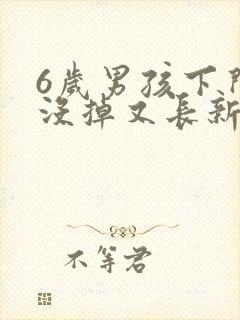 6歲男孩下門
沒掉又長新
不等君